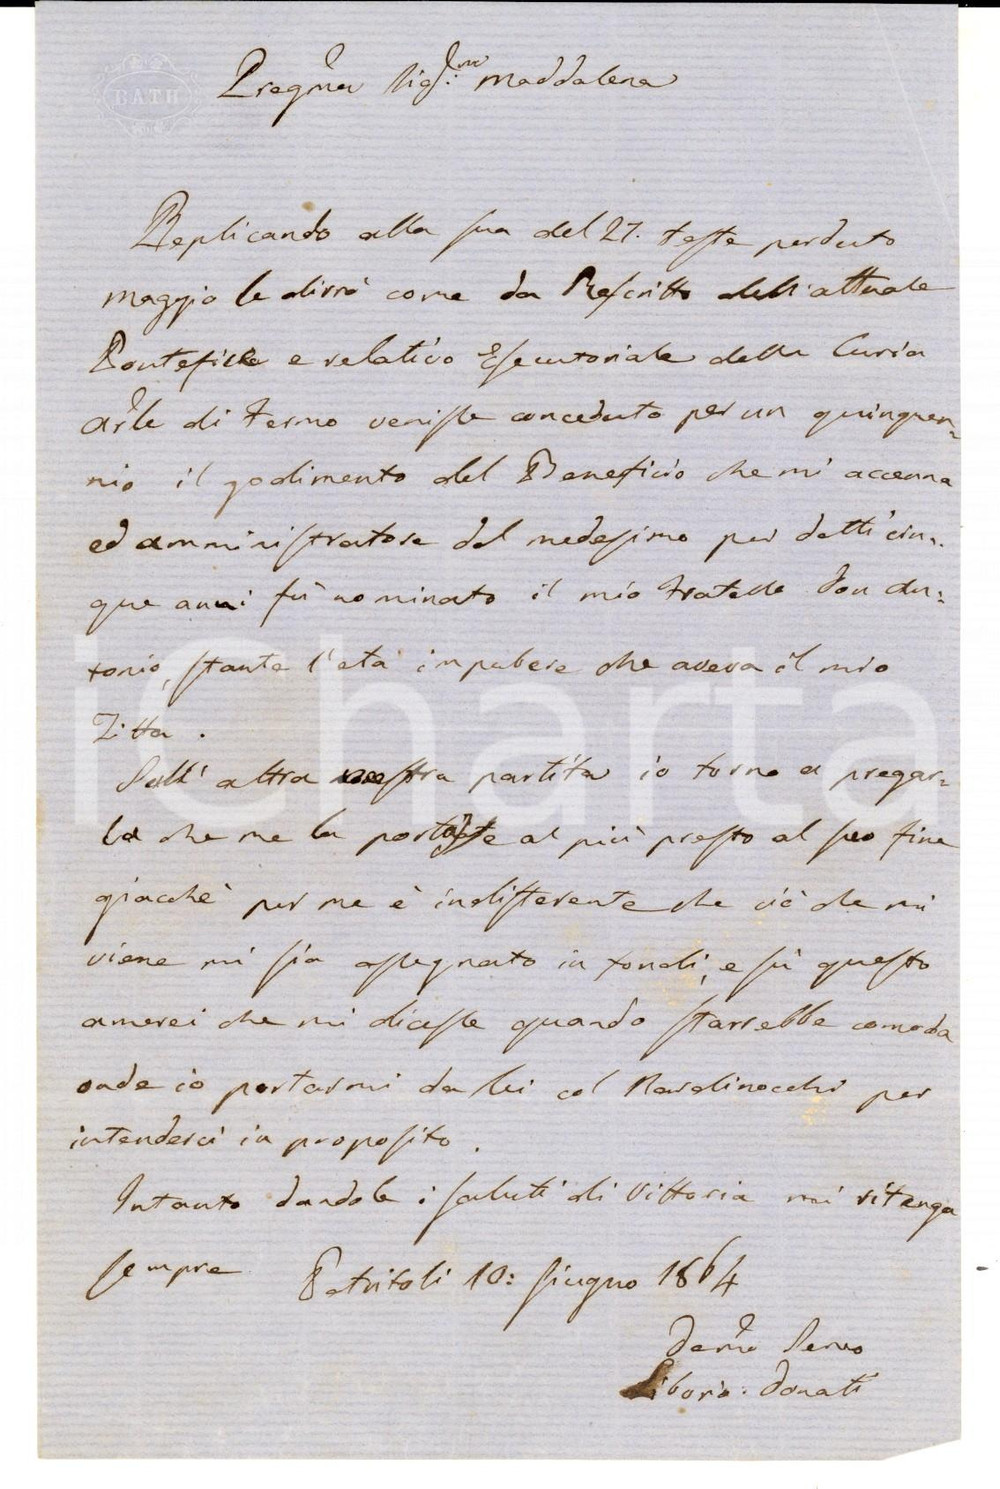 BATH
Pregma Sigra Maddalena
Replicando alla sua del 27. teste perduto
Maggio le dirrò come da Rescritto dell'attuale
Pontefice e relativo Esecutoriale della Curia
Arle di Fermo veniste conceduto per un quinquen=
nio il godimento del Beneficio che mi accenna
ed amministratore del medesimo per detti cin=
que anni fù nominato il mio Fratello Don An=
tonio, stante l'età impubere che aveva il mio
Titta.
Sull'altra nostra partita io torno a pregar=
la che me la portaste al più presto al suo fine
giacchè per me è indifferente che ciò che mi
viene mi sia assegnato in fondi, e sù questo
amerei che mi diceste quando starrebbe comoda
onde io portarmi da lei col Nardinocchi per
intenderci in proposito.
Intanto dandole i saluti di Vittoria mi ritenga
sempre
Petritoli 10: Giugno 1864
Devmo Servo
Liborio Donati
iCharta